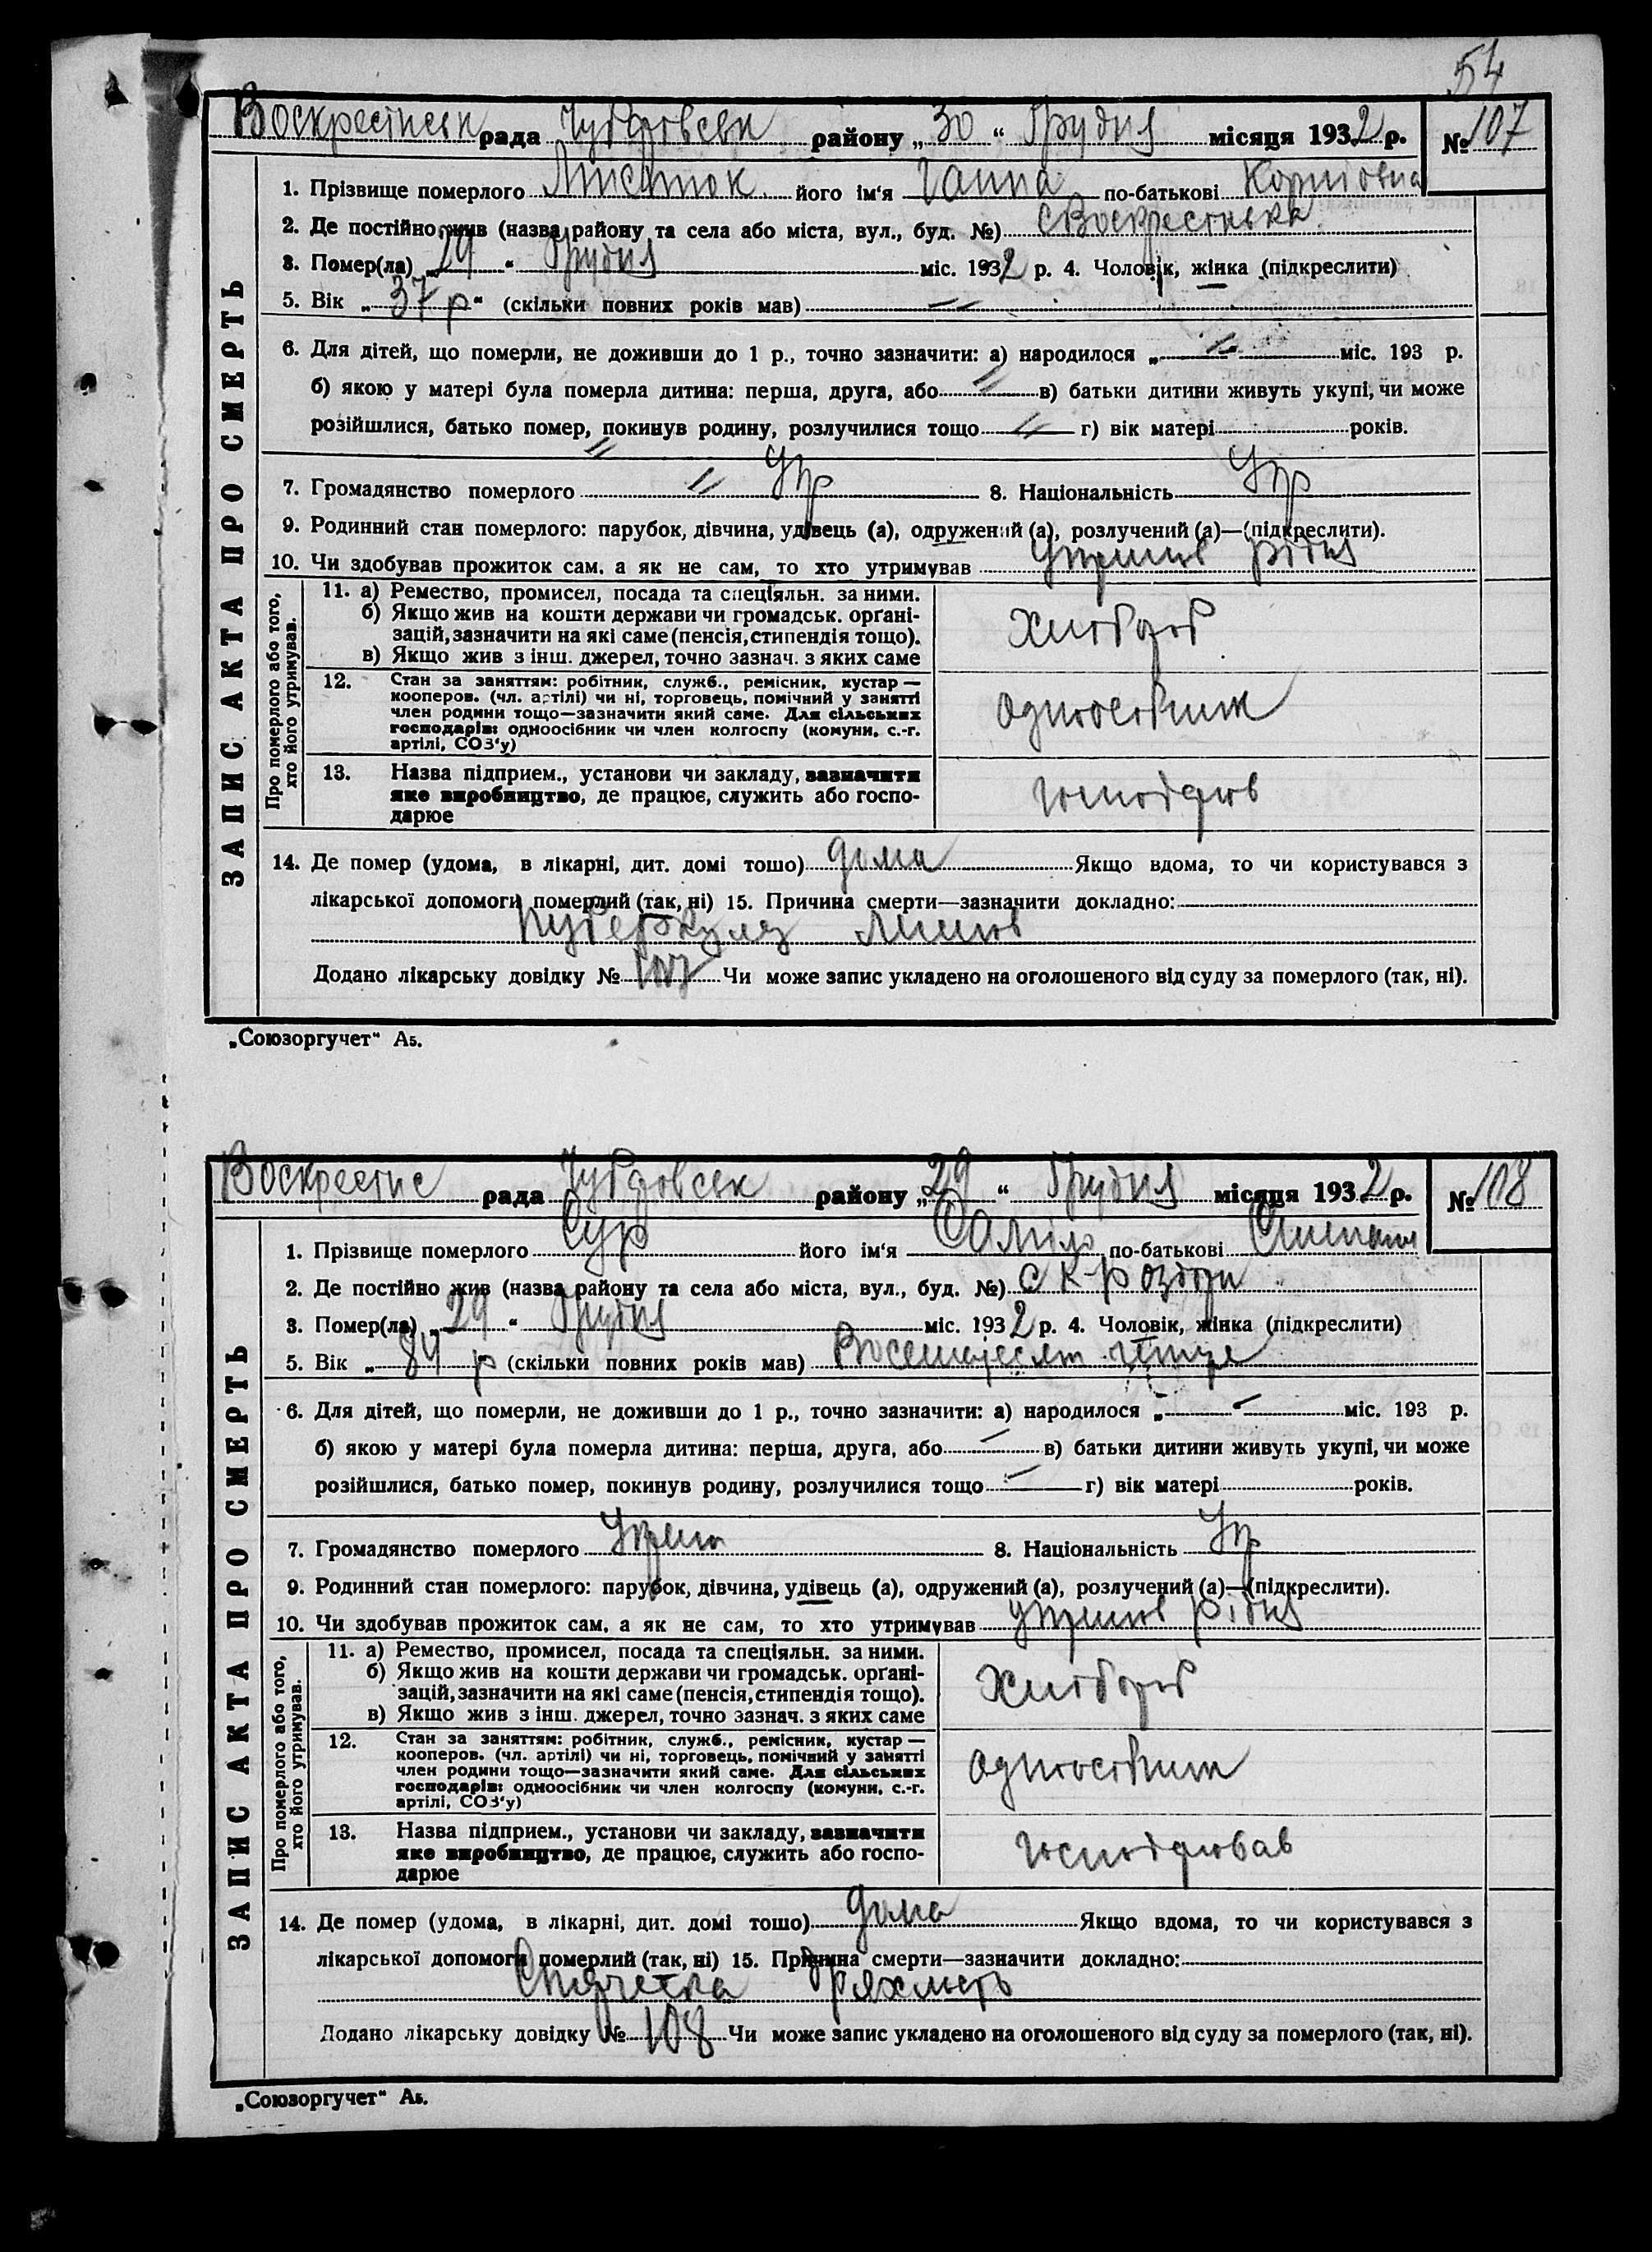 54
Воскресенськ рада Чубарівськ району „30“ Грудня місяця 1932 р. № 107
1. Прізвище померлого його ім‘я Ганна по-батькові
2. Де постійно жив (назва району та села або міста, вул., буд. №) с Воскресенька
3. Помер(ла) „29“ Грудня міс. 1932 р. 4. Чоловік, жінка (підкреслити)
5. Вік „37 р“ (скільки повних років мав) //
6. Для дітей, що померли, не доживши до 1 р., точно зазначити: а) народилося „ // міс. 193 р.
б) якою у матері була померла дитина: перша, друга, або // в) батьки дитини живуть укупі, чи може
розійшлися, батько помер, покинув родину, розлучилися тощо // г) вік матері років.
//
7. Громадянство померлого // Укр 8. Національність Укр
9. Родинний стан померлого: парубок, дівчина, удівець (а), одружений (а), розлучений (а)—(підкреслити).
10. Чи здобував прожиток сам, а як не сам, то хто утримував
ЗАПИС АКТА ПРО СМЕРТЬ
Про померлого або того, хто його утримував.
11. а) Ремество, промисел, посада та спеціяльн. за ними.
б) Якщо жив на кошти держави чи громадськ. орґані-
зацій, зазначити на які саме (пенсія, стипендія тощо).
в) Якщо жив з інш. джерел, точно зазнач. з яких саме
Хлібороб
12. Стан за заняттям: робітник, служб., ремісник, кустар —
кооперов. (чл. артілі) чи ні, торговець, помічний у занятті
член родини тощо—зазначити який саме. Для сільських
господарів: одноосібник чи член колгоспу (комуни, с.-г.
артілі, СОЗ‘у)
Одноосібник
13. Назва підприєм., установи чи закладу, зазначити
яке виробництво, де працює, служить або госпо-
дарює
14. Де помер (удома, в лікарні, дит. домі тошо) дома Якщо вдома, то чи користувався з
лікарської допомоги померлий (так, ні) 15. Причина смерти—зазначити докладно:
туберкулез
Додано лікарську довідку № 107 Чи може запис укладено на оголошеного від суду за померлого (так, ні).
„Союзоргучет“ А5.
Воскресенс рада Чубарівськ району „29“ Грудня місяця 1932 р. № 108
1. Прізвище померлого Сур його ім‘я по-батькові
2. Де постійно жив (назва району та села або міста, вул., буд. №) с К-Роздори
3. Помер(ла) „29“ Грудня міс. 1932 р. 4. Чоловік, жінка (підкреслити)
5. Вік „84 р (скільки повних років мав) Восемдесят
6. Для дітей, що померли, не доживши до 1 р., точно зазначити: а) народилося „ – міс. 193 р.
б) якою у матері була померла дитина: перша, друга, або – в) батьки дитини живуть укупі, чи може
розійшлися, батько помер, покинув родину, розлучилися тощо – г) вік матері років.
7. Громадянство померлого 8. Національність Укр
9. Родинний стан померлого: парубок, дівчина, удівець (а), одружений (а), розлучений (а)—(підкреслити).
10. Чи здобував прожиток сам, а як не сам, то хто утримував
ЗАПИС АКТА ПРО СМЕРТЬ
Про померлого або того, хто його утримував.
11. а) Ремество, промисел, посада та спеціяльн. за ними.
б) Якщо жив на кошти держави чи громадськ. орґані-
зацій, зазначити на які саме (пенсія, стипендія тощо).
в) Якщо жив з інш. джерел, точно зазнач. з яких саме
Хлібороб
12. Стан за заняттям: робітник, служб., ремісник, кустар —
кооперов. (чл. артілі) чи ні, торговець, помічний у занятті
член родини тощо—зазначити який саме. Для сільських
господарів: одноосібник чи член колгоспу (комуни, с.-г.
артілі, СОЗ‘у)
Одноосібник
13. Назва підприєм., установи чи закладу, зазначити
яке виробництво, де працює, служить або госпо-
дарює
Господарював
14. Де помер (удома, в лікарні, дит. домі тошо) дома Якщо вдома, то чи користувався з
лікарської допомоги померлий (так, ні) 15. Причина смерти—зазначити докладно:
дряхлість
Додано лікарську довідку № 108 Чи може запис укладено на оголошеного від суду за померлого (так, ні).
„Союзоргучет“ А5.